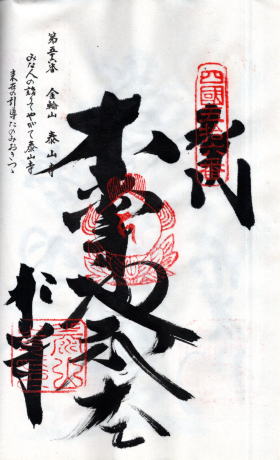 奉拝
四國五十六番
本尊地蔵大士
泰山寺
第五十六番 金輪山 泰山寺
みな人の詣りてやがて泰山寺
来世の引導たのみおきつゝ